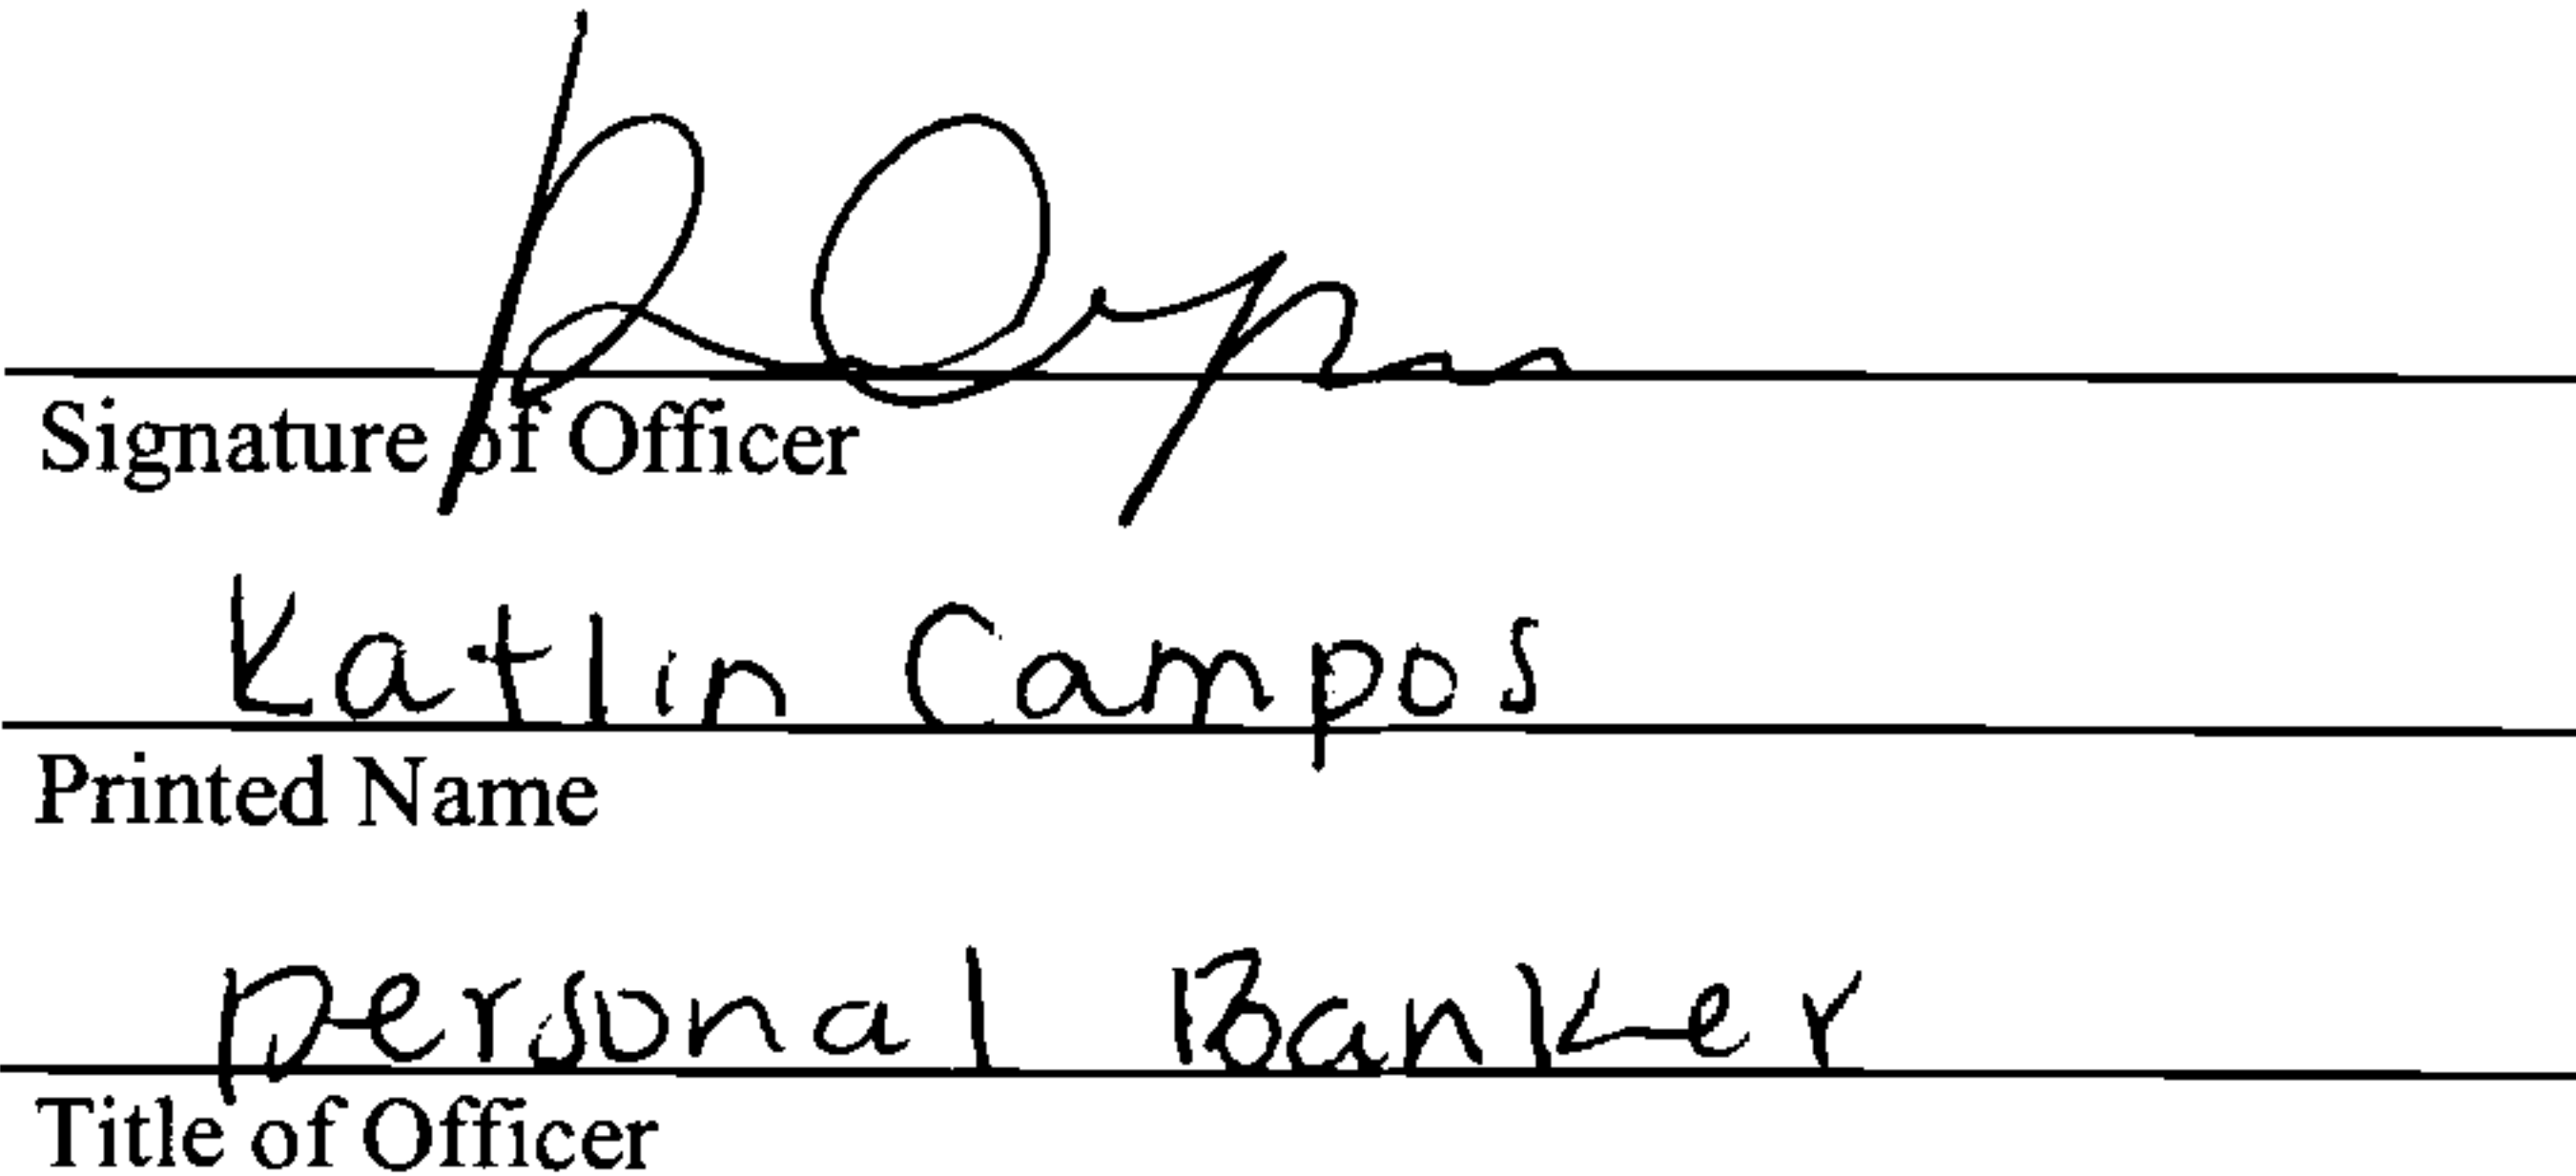 Signature of Officer
Katlin Campos
Printed Name
personal Banker
Title of Officer